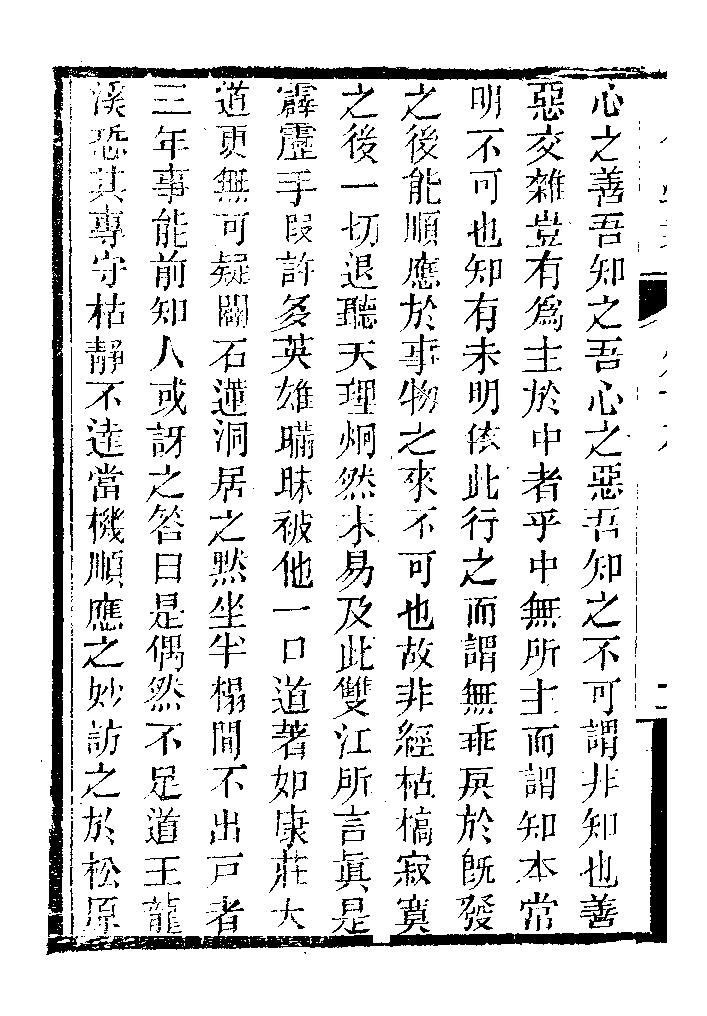 心之善吾知之吾心之惡吾知之不可謂非知也善
惡交雜豈有爲主於中者乎中無所主而謂知本常
明不可也知有未明依此行之而謂無乖戾於既發
之後能順應於事物之來不可也故非經枯槁寂寞
之後一切退聽天理炯然未易及此雙江所言眞是
霹靂手段許多英雄瞞昧被他一口道著如康莊大
道更無可疑闢石蓮洞居之默坐半榻間不出戸者
三年事能前知人或訝之答曰是偶然不足道王龍
溪恐其專守枯靜不達當機順應之妙訪之於松原